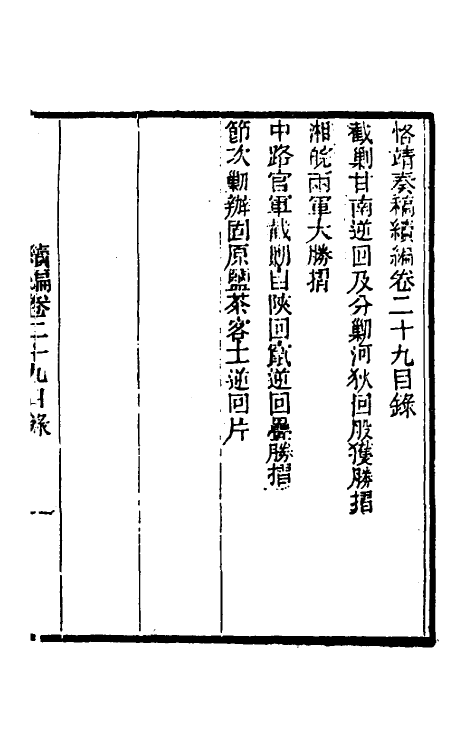 恪靖奏稿續編卷二十九目錄
截剿甘南逆回及分勦河狄回股獲勝摺
湘皖兩軍大勝摺
中路官軍截勦自陝回竄逆回疊勝摺
節次勦辦固原鹽茶客土逆回片
續編卷二十九目錄
一